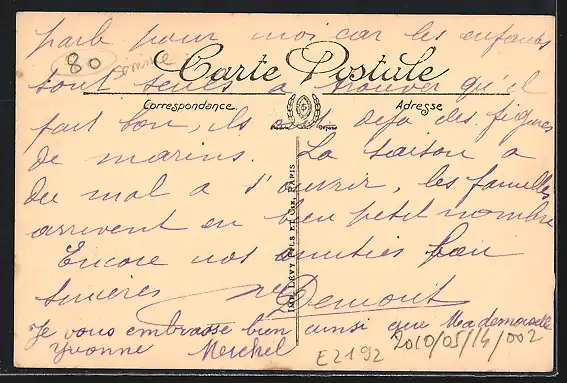 parle pour moi car les enfants
80 somme
Carte Postale
sont seuls a trouver qu'il
Correspondance Adresse
fait bon, ils ont deja des figures
de marins. La saison a
du mal a s'ouvrir, les familles
arrivent en bien petit nombre
Encore nos amities bien
sinceres Demont
IMP. LÉVY FILS ET CIE, PARIS
Je vous embrasse bien ainsi que Mademoiselle
Yvonne Merchel
E2192 2010/05/14/002